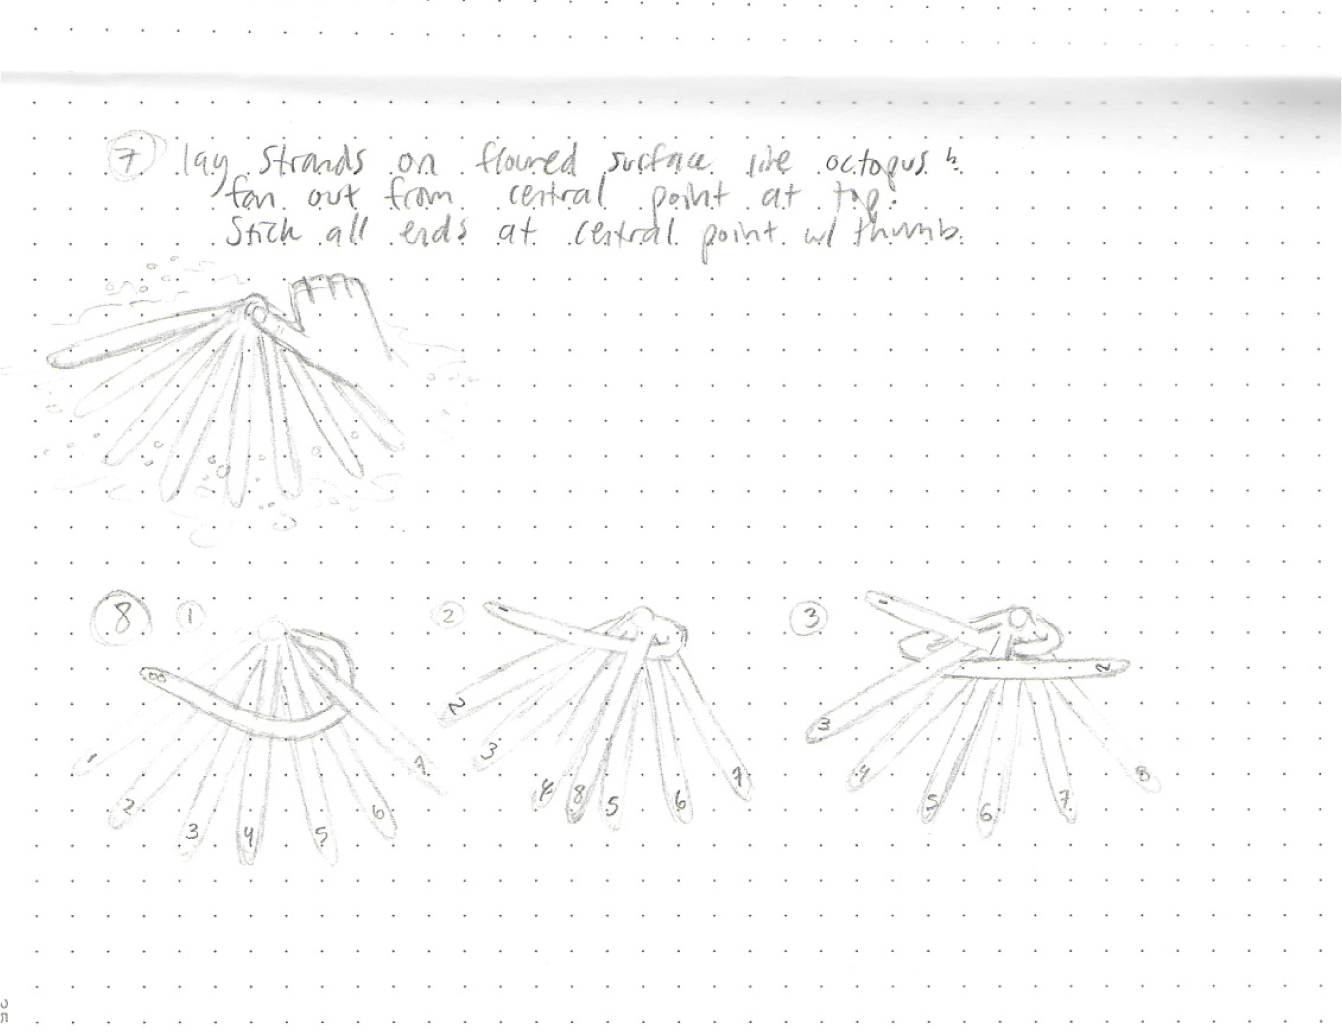 7 lay strands on floured surface like octopus &
fan out from central point at top.
Stick all ends at central point w/ thumb.
8 1 2 3
8 1 2 3 4 5 6 7
1 2 3 4 8 5 6 7
1 2 3 4 5 6 7 8
25